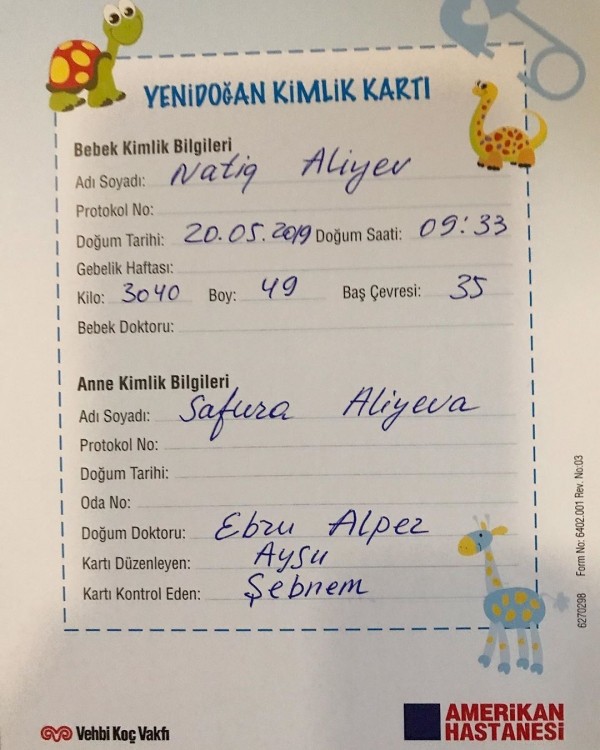 YENİDOĞAN KİMLİK KARTI
Bebek Kimlik Bilgileri
Adı Soyadı: Natiq Aliyev
Protokol No:
Doğum Tarihi: 20.05.2019 Doğum Saati: 09:33
Gebelik Haftası:
Kilo: 3040 Boy: 49 Baş Çevresi: 35
Bebek Doktoru:
Anne Kimlik Bilgileri
Adı Soyadı: Safura Aliyeva
Protokol No:
Doğum Tarihi:
Oda No:
Doğum Doktoru: Ebru Alper
Kartı Düzenleyen: Aysu
Kartı Kontrol Eden: Şebnem
6270298 Form No: 6402.001 Rev. No:03
Vehbi Koç Vakfı
AMERİKAN
HASTANESİ